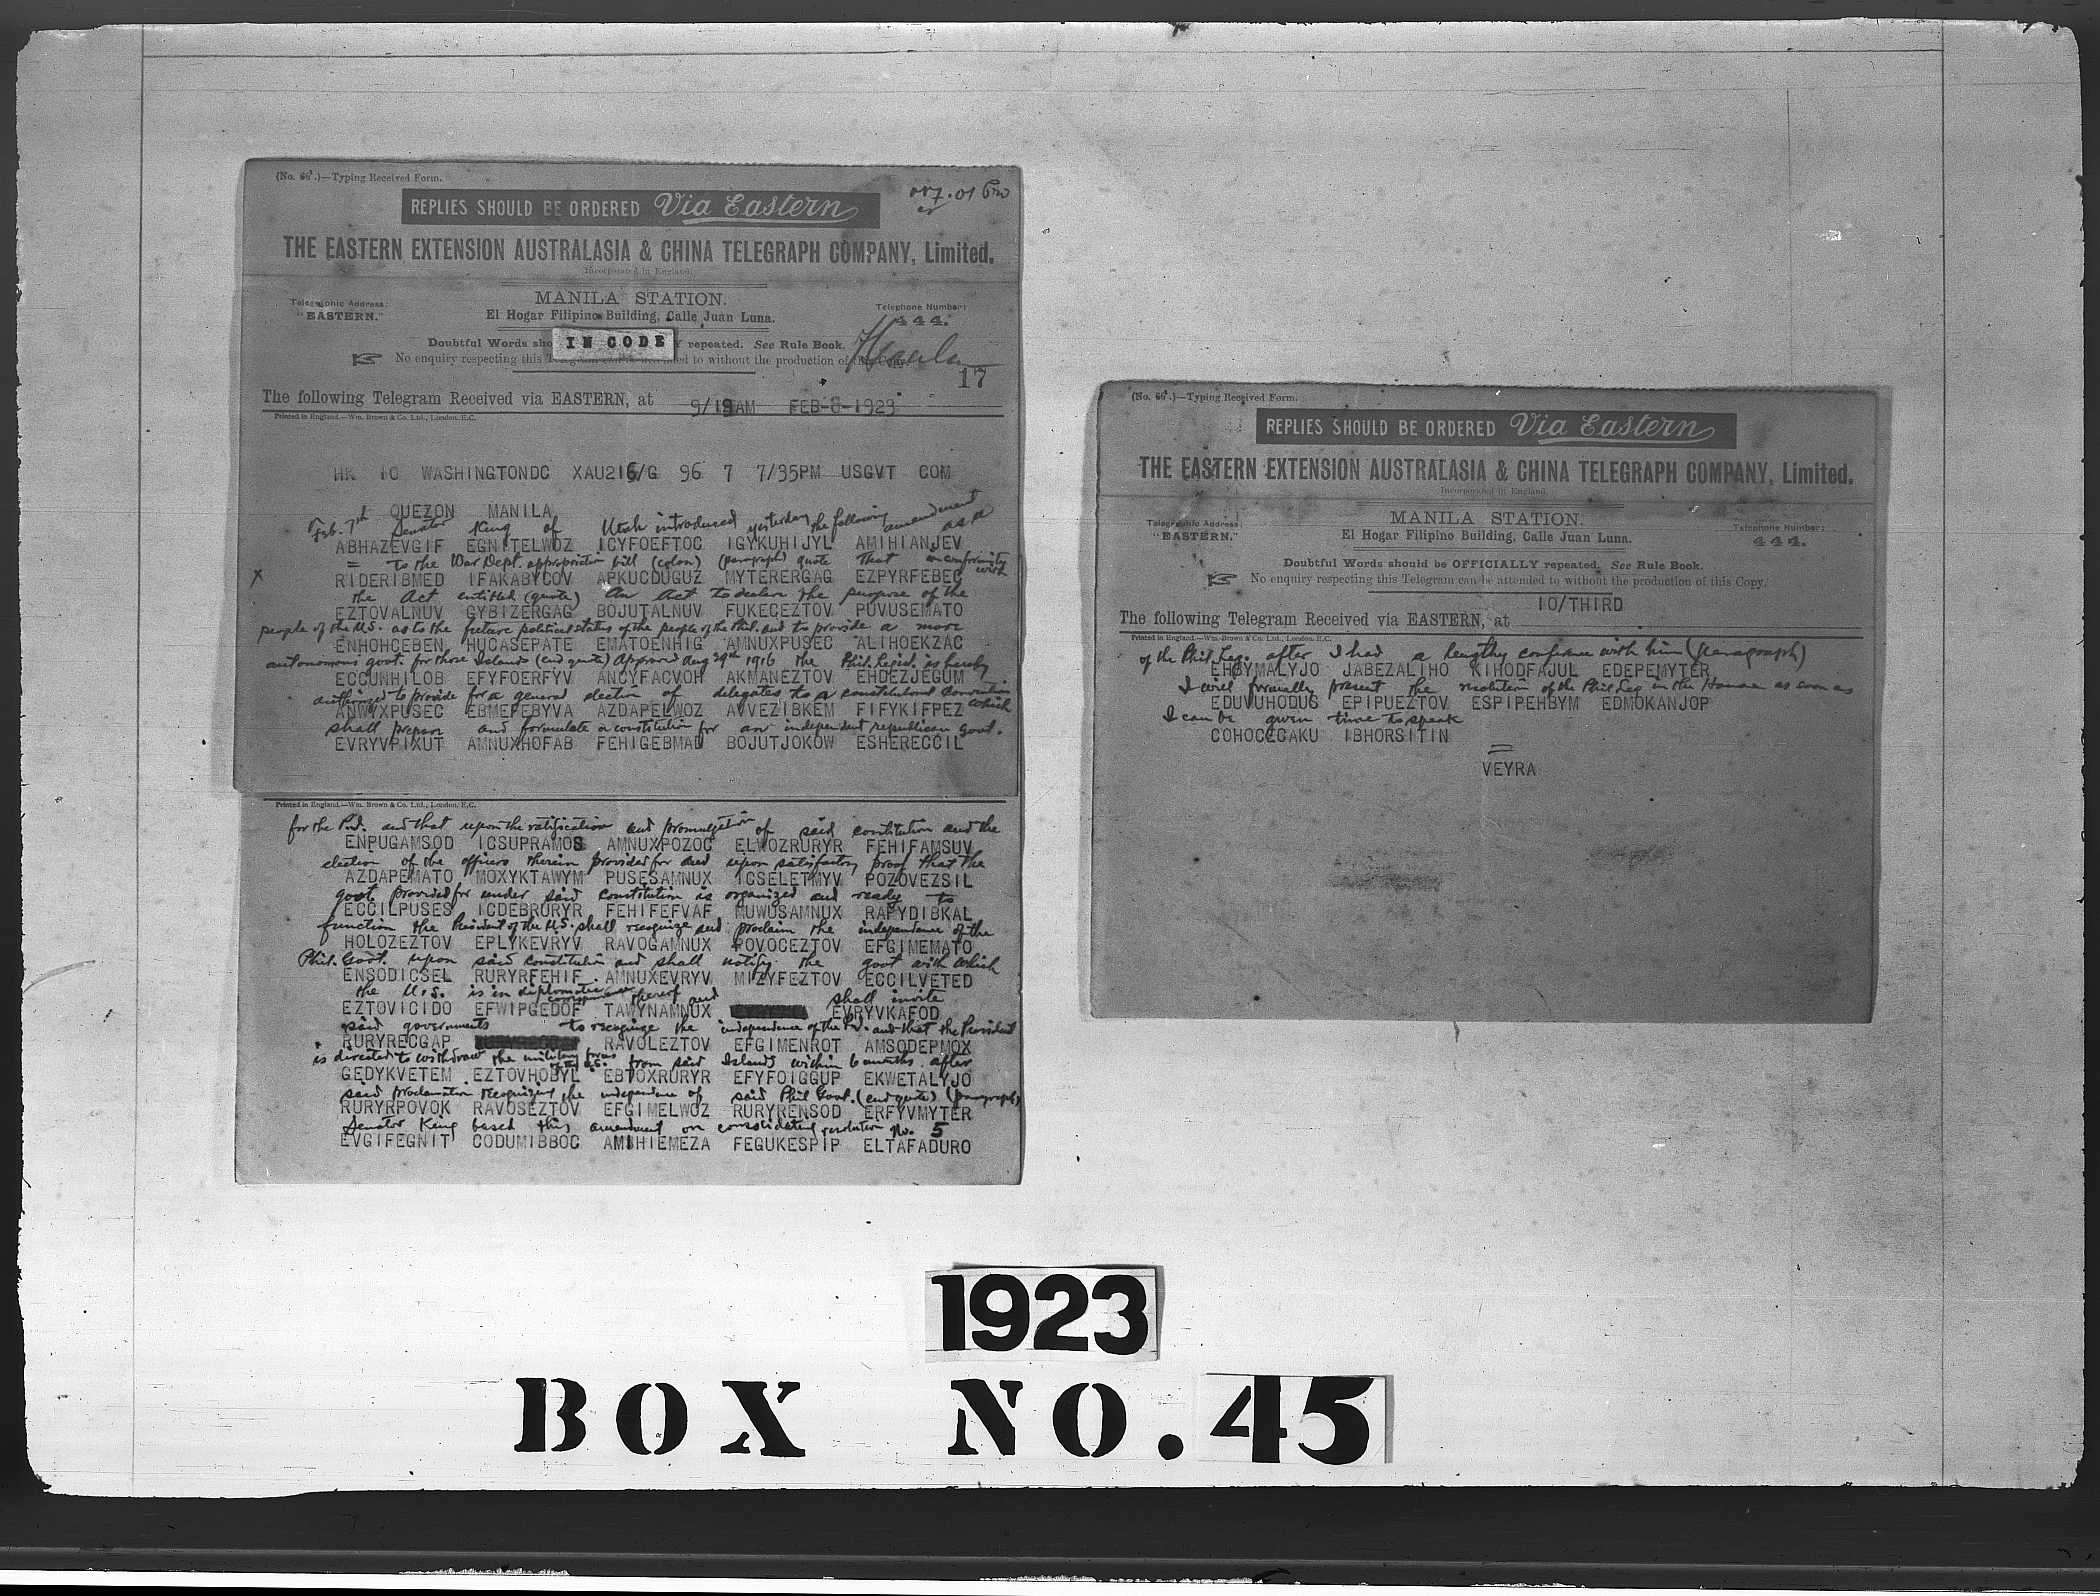 (No. 66ᴬ.)—Typing Received Form.
REPLIES SHOULD BE ORDERED Via Eastern
THE EASTERN EXTENSION AUSTRALASIA & CHINA TELEGRAPH COMPANY, Limited.
Incorporated in England.
MANILA STATION.
Telegraphic Address:
"EASTERN."
El Hogar Filipino Building, Calle Juan Luna.
Telephone Number:
444.
IN CODE
Doubtful Words repeated. See Rule Book.
No enquiry respecting this to without the production of this Copy.
17
The following Telegram Received via EASTERN, at 9/19AM FEB-8-1923
Printed in England.—Wm. Brown & Co. Ltd., London, E.C.
HK 10 WASHINGTONDC XAU216/G 96 7 7/35PM USGVT COM
QUEZON MANILA
Feb. 7th Senator King of Utah introduced yesterday the following amendment as a
ABHAZEVGIF EGNITELWOZ ICYFOEFTOC IGYKUHIJYL AMIHIANJEV
= to the War Dept. appropriation bill (colon) (paragraph) quote That in conformity with
X RIDERIBMED IFAKABYCOV APKUCDUGUZ MYTERERGAG EZPYRFEBEC
the Act entitled (quote) An Act to declare the purpose of the
EZTOVALNUV GYBIZERGAG BOJUTALNUV FUKECEZTOV PUVUSEMATO
people of the U.S. as to the future political status of the people of the Phil. and to provide a more
ENHOHCEBEN HUCASEPATE EMATOENHIG AMNUXPUSEC ALIHOEKZAC
autonomous govt. for those Islands (end quote) Approved Aug 29th 1916 the Phil. Legisl. is hereby
ECCUNHILOB EFYFOERFYV ANCYFACVOH AKMANEZTOV EHDEZJEGUM
authorized to provide for a general election of delegates to a constitutional convention which
ANWYXPUSEC EBMEFEBYVA AZDAPELWOZ AVVEZIBKEM FIFYKIFPEZ
shall prepare and formulate a constitution for an independent republican govt.
EVRYVPIXUT AMNUXHOFAB FEHIGEBMAD BOJUTJOKOW ESHERECCIL
Printed in England.—Wm. Brown & Co. Ltd., London, E.C.
for the P.I. and that upon the ratification and promulgation of said constitution and the
ENPUGAMSOD ICSUPRAMOS AMNUXPOZOC ELWOZRURYR FEHIFAMSUV
election of the officers therein provided for and upon satisfactory proof that the
AZDAPEMATO MOXYKTAWYM PUSESAMNUX ICSELETMYV POZOVEZSIL
govt provided for under said constitution is organized and ready to
ECCILPUSES ICDEBRURYR FEHIFEFVAF MUWUSAMNUX RAFYDIBKAL
function the President of the U.S. shall recognize and proclaim the independence of the
HOLOZEZTOV EPLYKEVRYV RAVOGAMNUX POVOCEZTOV EFGIMEMATO
Phil. Govt. upon said constitution and shall notify the govt with which
ENSODICSEL RURYRFEHIF AMNUXEVRYV MIZYFEZTOV ECCILVETED
the U.S. is in diplomatic correspondence thereof and shall invite
EZTOVICIDO EFWIPGEDOF TAWYNAMNUX EVRYVKAFOD
said governments to recognize the independence of the P.I. and that the President
RURYRECGAP RAVOLEZTOV EFGIMENROT AMSODEPMOX
is directed to withdraw the military forces of the U.S. from said Islands within 6 months after
GEDYKVETEM EZTOVHOBYL EBTOXRURYR EFYFOIGGUP EKWETALYJO
said proclamation recognizing the independence of said Phil Govt. (end quote) (paragraph)
RURYRPOVOK RAVOSEZTOV EFGIMELWOZ RURYRENSOD ERFYVMYTER
Senator King based this amendment on consolidating resolution No. 5
EVGIFEGNIT CODUMIBBOC AMIHIEMEZA FEGUKESPIP ELTAFADURO
(No. 66ᴬ.)—Typing Received Form.
REPLIES SHOULD BE ORDERED Via Eastern
THE EASTERN EXTENSION AUSTRALASIA & CHINA TELEGRAPH COMPANY, Limited.
Incorporated in England.
MANILA STATION.
Telegraphic Address:
"EASTERN."
El Hogar Filipino Building, Calle Juan Luna.
Telephone Number:
444.
Doubtful Words should be OFFICIALLY repeated. See Rule Book.
No enquiry respecting this Telegram can be attended to without the production of this Copy.
10/THIRD
The following Telegram Received via EASTERN, at
Printed in England.—Wm. Brown & Co. Ltd., London, E.C.
of the Phil. Leg. after I had a lengthy conference with him (paragraph)
EHGYMALYJO JABEZALIHO KIHODFAJUL EDEPEMYTER
I will formally present the resolution of the Phil Leg in the House as soon as
EDUVUHODUG EPIPUEZTOV ESPIPEHBYM EDMOKANJOP
I can be given time to speak
COHOCECAKU IBHORSITIN
=
VEYRA
1923
BOX NO. 45